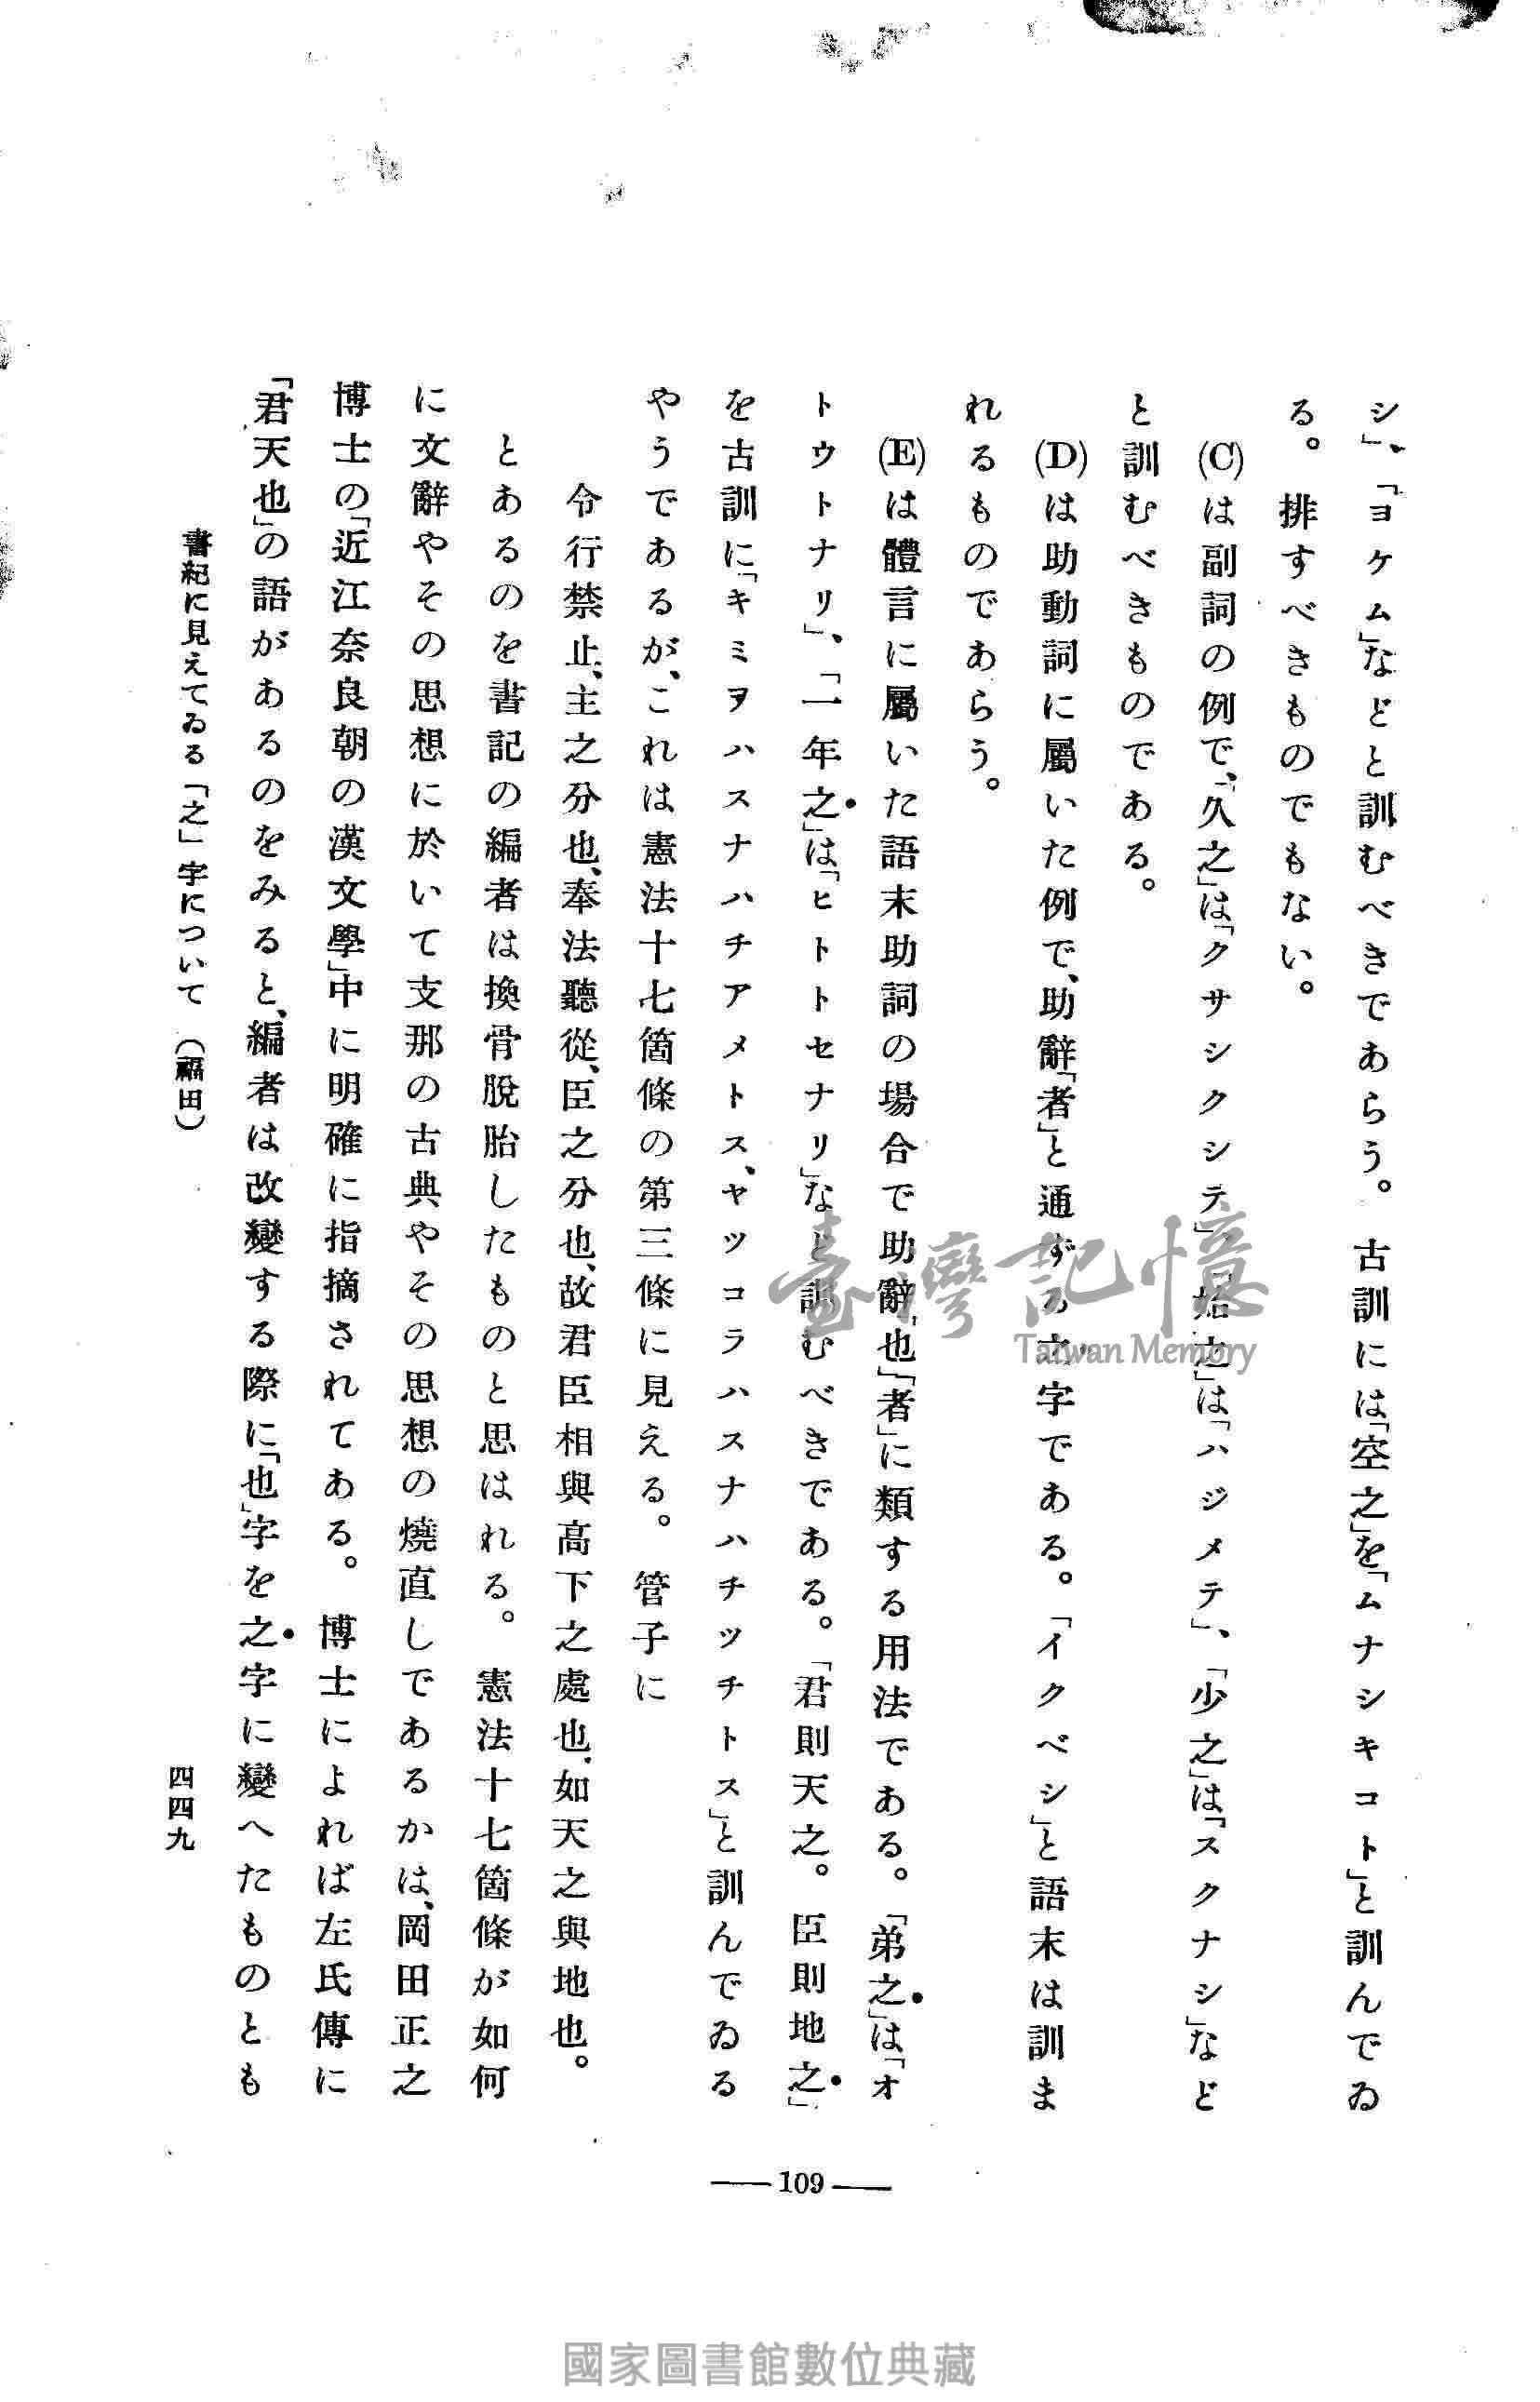 シ」、「ヨケム」などと訓むべきであらう。古訓には「空之」を「ムナシキコト」と訓んでゐ
る。排すべきものでもない。
(C)は副詞の例で、「久之」は「クサシクシテ」、「始之」は「ハジメテ」、「少之」は「スクナシ」など
と訓むべきものである。
(D)は助動詞に屬いた例で、助辭「者」と通ずる之字である。「イクベシ」と語末は訓ま
れるものであらう。
(E)は體言に屬いた語末助詞の場合で助辭「也」「者」に類する用法である。「弟之」は「オ
トウトナリ」、「一年之」は「ヒトトセナリ」など訓むべきである。「君則天之。臣則地之」
を古訓に「キミヲハスナハチアメトス、ヤツコラハスナハチツチトス」と訓んでゐる
やうであるが、これは憲法十七箇條の第三條に見える。管子に
令行禁止、主之分也、奉法聽從、臣之分也、故君臣相與高下之處也、如天之與地也。
とあるのを書記の編者は換骨脫胎したものと思はれる。憲法十七箇條が如何
に文辭やその思想に於いて支那の古典やその思想の燒直しであるかは、岡田正之
博士の「近江奈良朝の漢文學」中に明確に指摘されてある。博士によれば左氏傳に
「君天也」の語があるのをみると、編者は改變する際に「也」字を之字に變へたものとも
書紀に見えてゐる「之」字について（福田）
四四九
109
臺灣記憶
Taiwan Memory
國家圖書館數位典藏